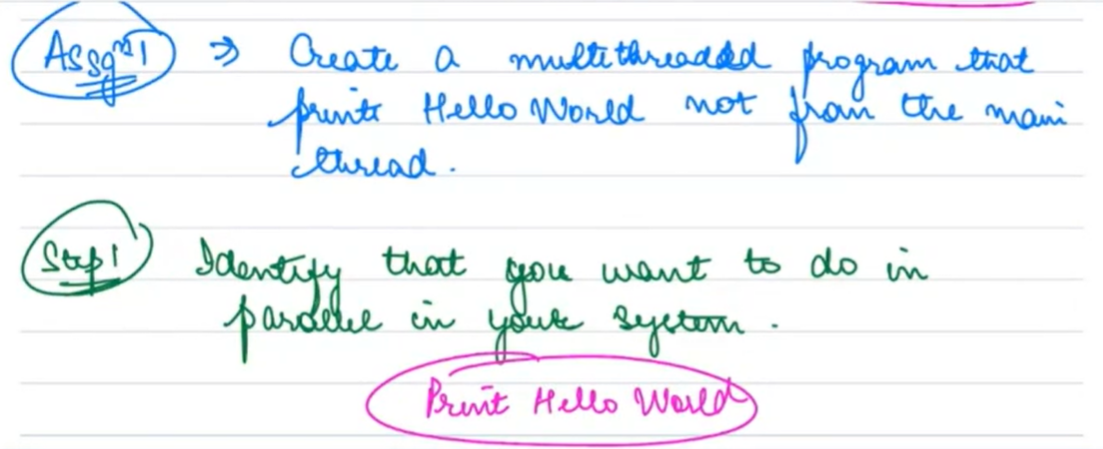 Assgn 1 ⇒ Create a multithreaded program that
prints Hello World not from the main
thread.
Step 1 Identify that you want to do in
parallel in your system.
Print Hello World